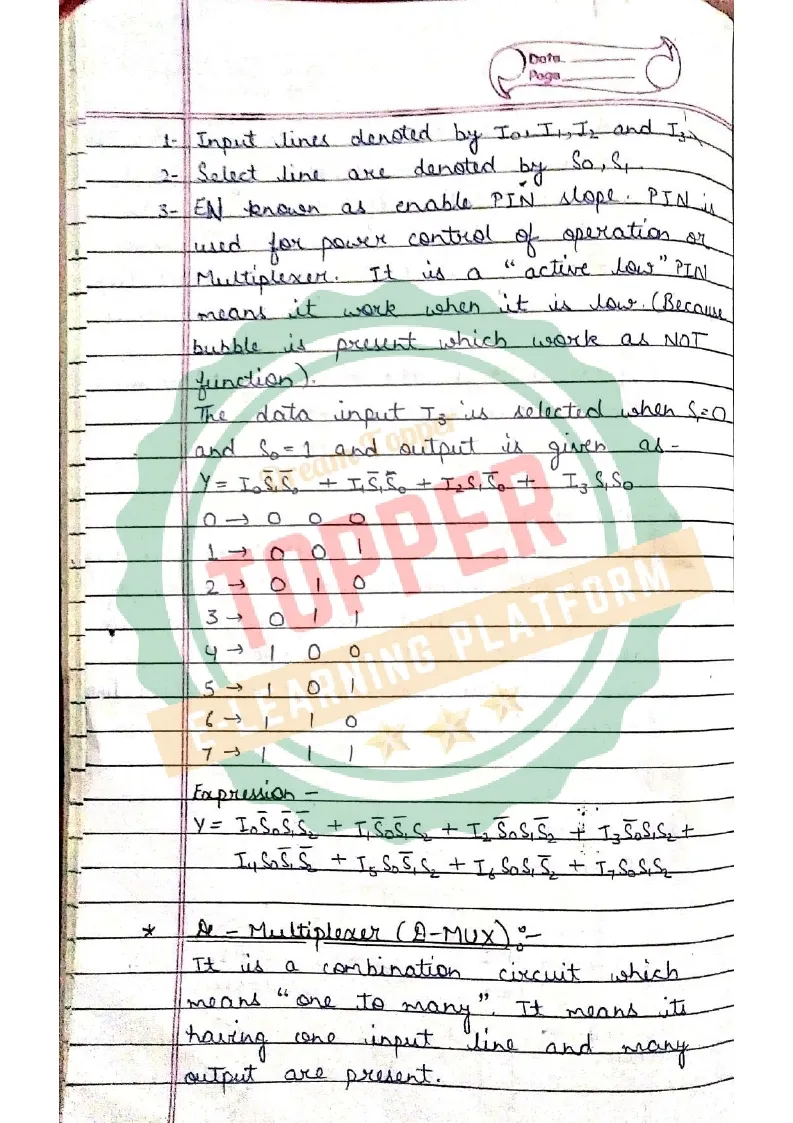 Data
Page
1- Input lines denoted by I0, I1, I2 and I3.
2- Select line are denoted by S0, S1
3- EN known as enable PIN slope. PIN is
used for power control of operation or
Multiplexer. It is a "active low" PIN
means it work when it is low. (Because
bubble is present which work as NOT
function).
The data input I3 is selected when S1=0
and S0=1 and output is given as-
Dream Topper
Y = I0S̄1S̄0 + I1S̄1S̄0 + I2S1S̄0 + I3S1S0
0 → 0 0 0
1 → 0 0 1
TOPPER
2 → 0 1 0
3 → 0 1 1
4 → 1 0 0
5 → 1 0 1
E-LEARNING PLATFORM
6 → 1 1 0
7 → 1 1 1
Expression -
Y = I0S̄0S̄1S̄2 + I1S̄0S̄1S2 + I2S̄0S1S̄2 + I3S̄0S1S2 +
I4S0S̄1S̄2 + I5S0S̄1S2 + I6S0S1S̄2 + I7S0S1S2
* De - Multiplexer (D-MUX):-
It is a combination circuit which
means "one to many". It means its
having one input line and many
output are present.